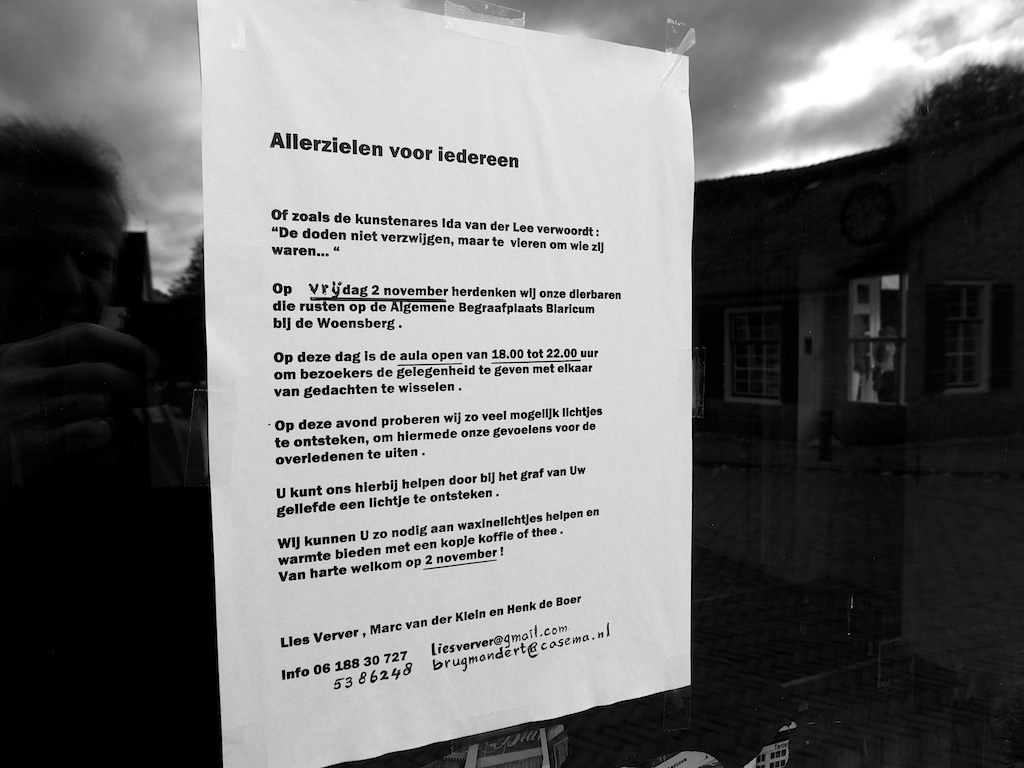 Allerzielen voor iedereen
Of zoals de kunstenares Ida van der Lee verwoordt :
“De doden niet verzwijgen, maar te vieren om wie zij
waren... “
Op vrijdag 2 november herdenken wij onze dierbaren
die rusten op de Algemene Begraafplaats Blaricum
bij de Woensberg .
Op deze dag is de aula open van 18.00 tot 22.00 uur
om bezoekers de gelegenheid te geven met elkaar
van gedachten te wisselen .
Op deze avond proberen wij zo veel mogelijk lichtjes
te ontsteken, om hiermede onze gevoelens voor de
overledenen te uiten .
U kunt ons hierbij helpen door bij het graf van Uw
geliefde een lichtje te ontsteken .
Wij kunnen U zo nodig aan waxinelichtjes helpen en
warmte bieden met een kopje koffie of thee .
Van harte welkom op 2 november !
Lies Verver , Marc van der Klein en Henk de Boer
Info 06 188 30 727 liesverver@gmail.com
5386248 brugmandert@casema.nl